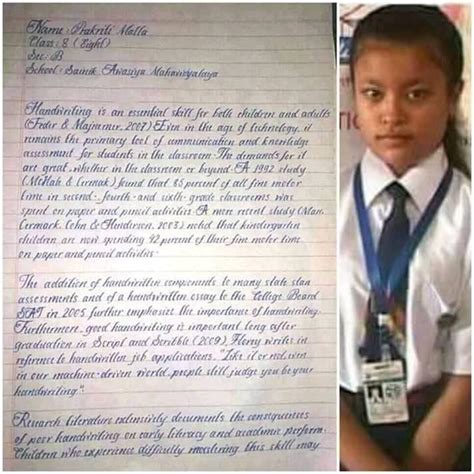 Name : Prakriti Malla
Class : 8 (Eight)
Sec : B
School : Sainik Awasiya Mahavidyalaya
Handwriting is an essential skill for both children and adults
(Feder & Majnemer, 2007) Even in the age of technology, it
remains the primary tool of communication and knowledge
assessment for students in the classroom. The demands for it
are great, whether in the classroom or beyond. A 1992 study
(McHale & Cermak) found that 85 percent of all fine motor
time in second- fourth- and sixth-grade classrooms was
spent on paper and pencil activities. A more recent study (Marr,
Cermark, Cohn & Henderson, 2003) noted that kindergarten
children are now spending 42 percent of their fine motor time
on paper and pencil activities.
The addition of handwritten components to many state stan
assessments and of a handwritten essay to the College Board
SAT in 2005 further emphasize the importance of handwriting.
Furthermore, good handwriting is important long after
graduation in Script and Scribble (2009), Florey writes in
reference to handwritten job applications, "Like it or not, even
in our machine-driven world, people still judge you by your
handwriting".
Research literature extensively documents the consequences
of poor handwriting on early literacy and academic perform.
Children who experience difficulty mastering this skill may